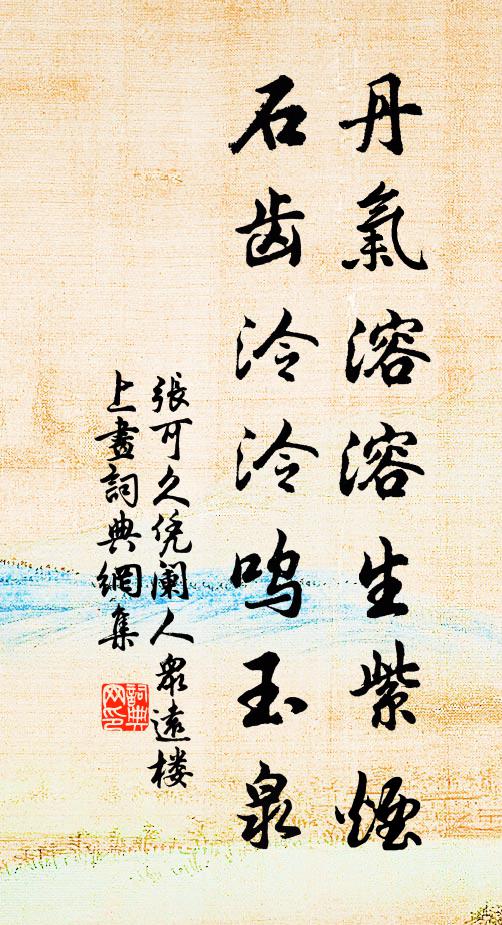 丹氣溶溶生紫煙
石齿泠泠鸣玉泉
張可久凭阑人眾遠楼
上畫詞典網集
詞典网印